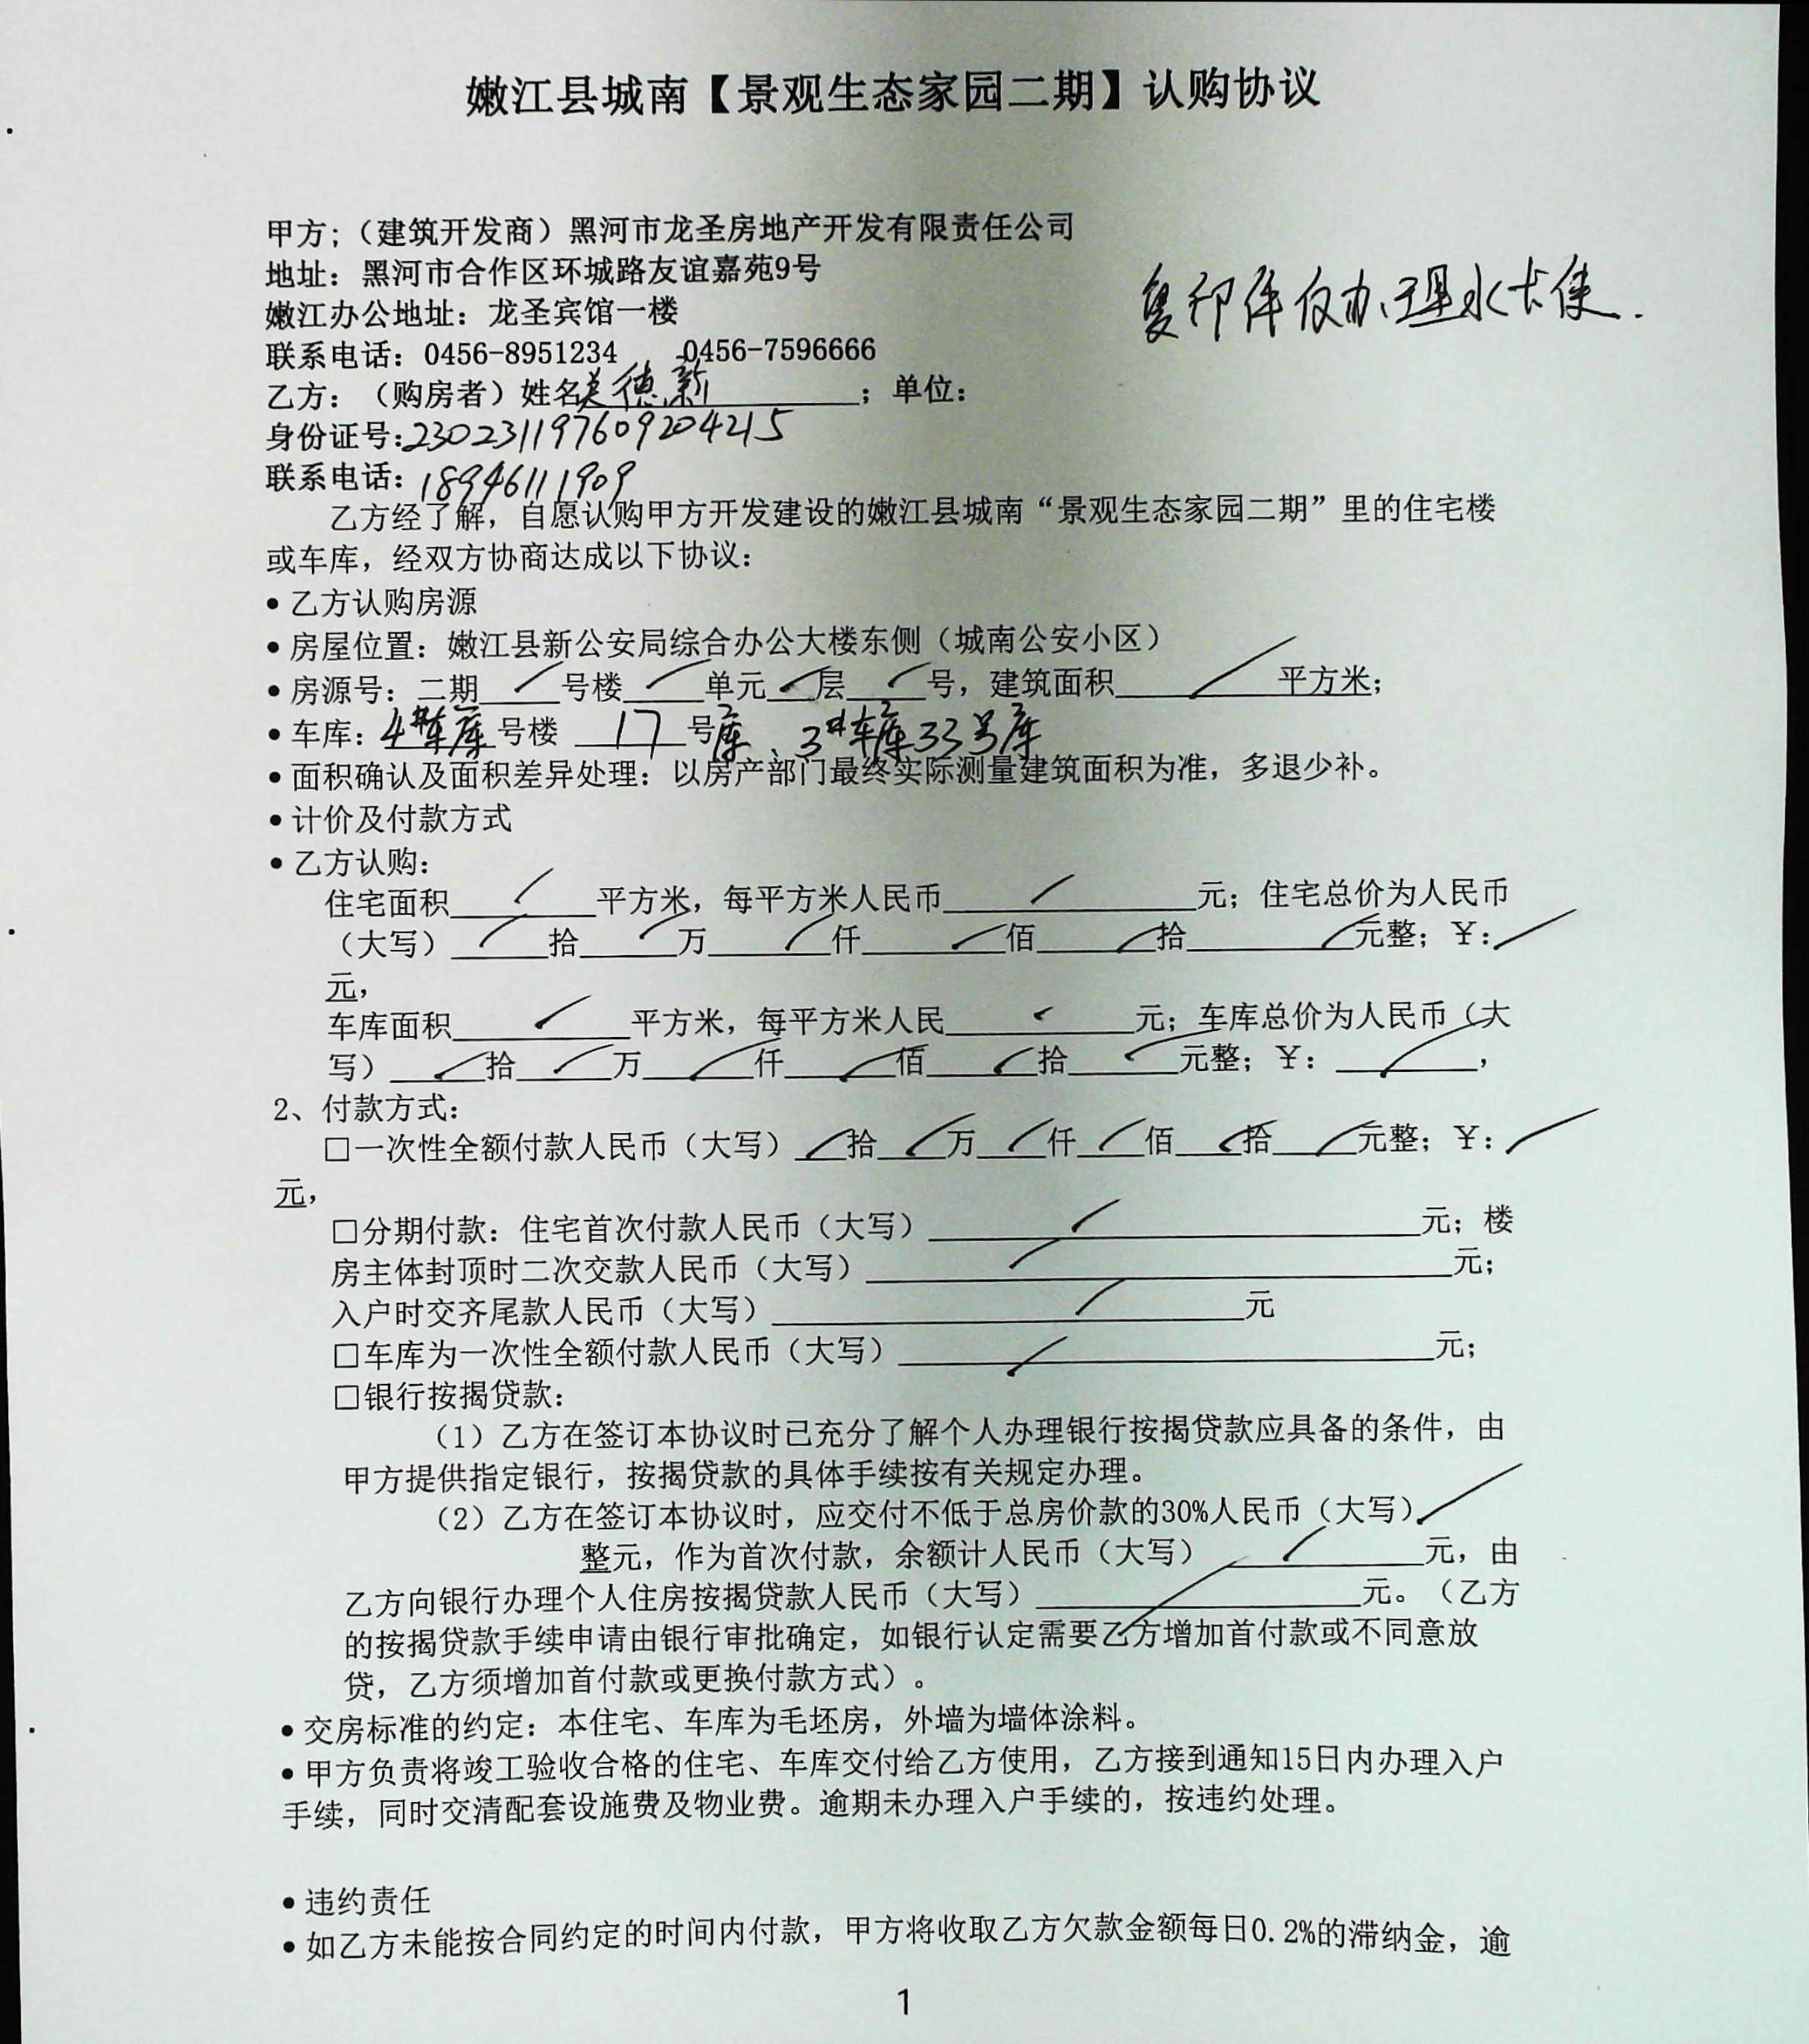 嫩江县城南【景观生态家园二期】认购协议
甲方;（建筑开发商）黑河市龙圣房地产开发有限责任公司
地址：黑河市合作区环城路友谊嘉苑9号
复印件仅办理水卡使.
嫩江办公地址：龙圣宾馆一楼
联系电话：0456-8951234 0456-7596666
乙方：（购房者）姓名 德新；单位：
身份证号:230231197609204215
联系电话：18946111909
乙方经了解，自愿认购甲方开发建设的嫩江县城南“景观生态家园二期”里的住宅楼
或车库，经双方协商达成以下协议：
• 乙方认购房源
• 房屋位置：嫩江县新公安局综合办公大楼东侧（城南公安小区）
• 房源号：二期____号楼____单元___层____号，建筑面积________平方米；
• 车库：4#车库号楼 17号库、3#车库33号库
• 面积确认及面积差异处理：以房产部门最终实际测量建筑面积为准，多退少补。
• 计价及付款方式
• 乙方认购：
住宅面积______平方米，每平方米人民币________元；住宅总价为人民币
（大写）____拾____万____仟____佰____拾____元整；￥：
元，
车库面积______平方米，每平方米人民______元；车库总价为人民币（大
写）____拾____万____仟____佰____拾____元整；￥：______，
2、付款方式：
□一次性全额付款人民币（大写）___拾___万___仟___佰___拾___元整；￥：
元，
□分期付款：住宅首次付款人民币（大写）________元；楼
房主体封顶时二次交款人民币（大写）________元；
入户时交齐尾款人民币（大写）________元
□车库为一次性全额付款人民币（大写）________元；
□银行按揭贷款：
（1）乙方在签订本协议时已充分了解个人办理银行按揭贷款应具备的条件，由
甲方提供指定银行，按揭贷款的具体手续按有关规定办理。
（2）乙方在签订本协议时，应交付不低于总房价款的30%人民币（大写）
整元，作为首次付款，余额计人民币（大写）______元，由
乙方向银行办理个人住房按揭贷款人民币（大写）________元。（乙方
的按揭贷款手续申请由银行审批确定，如银行认定需要乙方增加首付款或不同意放
贷，乙方须增加首付款或更换付款方式）。
• 交房标准的约定：本住宅、车库为毛坯房，外墙为墙体涂料。
• 甲方负责将竣工验收合格的住宅、车库交付给乙方使用，乙方接到通知15日内办理入户
手续，同时交清配套设施费及物业费。逾期未办理入户手续的，按违约处理。
• 违约责任
• 如乙方未能按合同约定的时间内付款，甲方将收取乙方欠款金额每日0.2%的滞纳金，逾
1